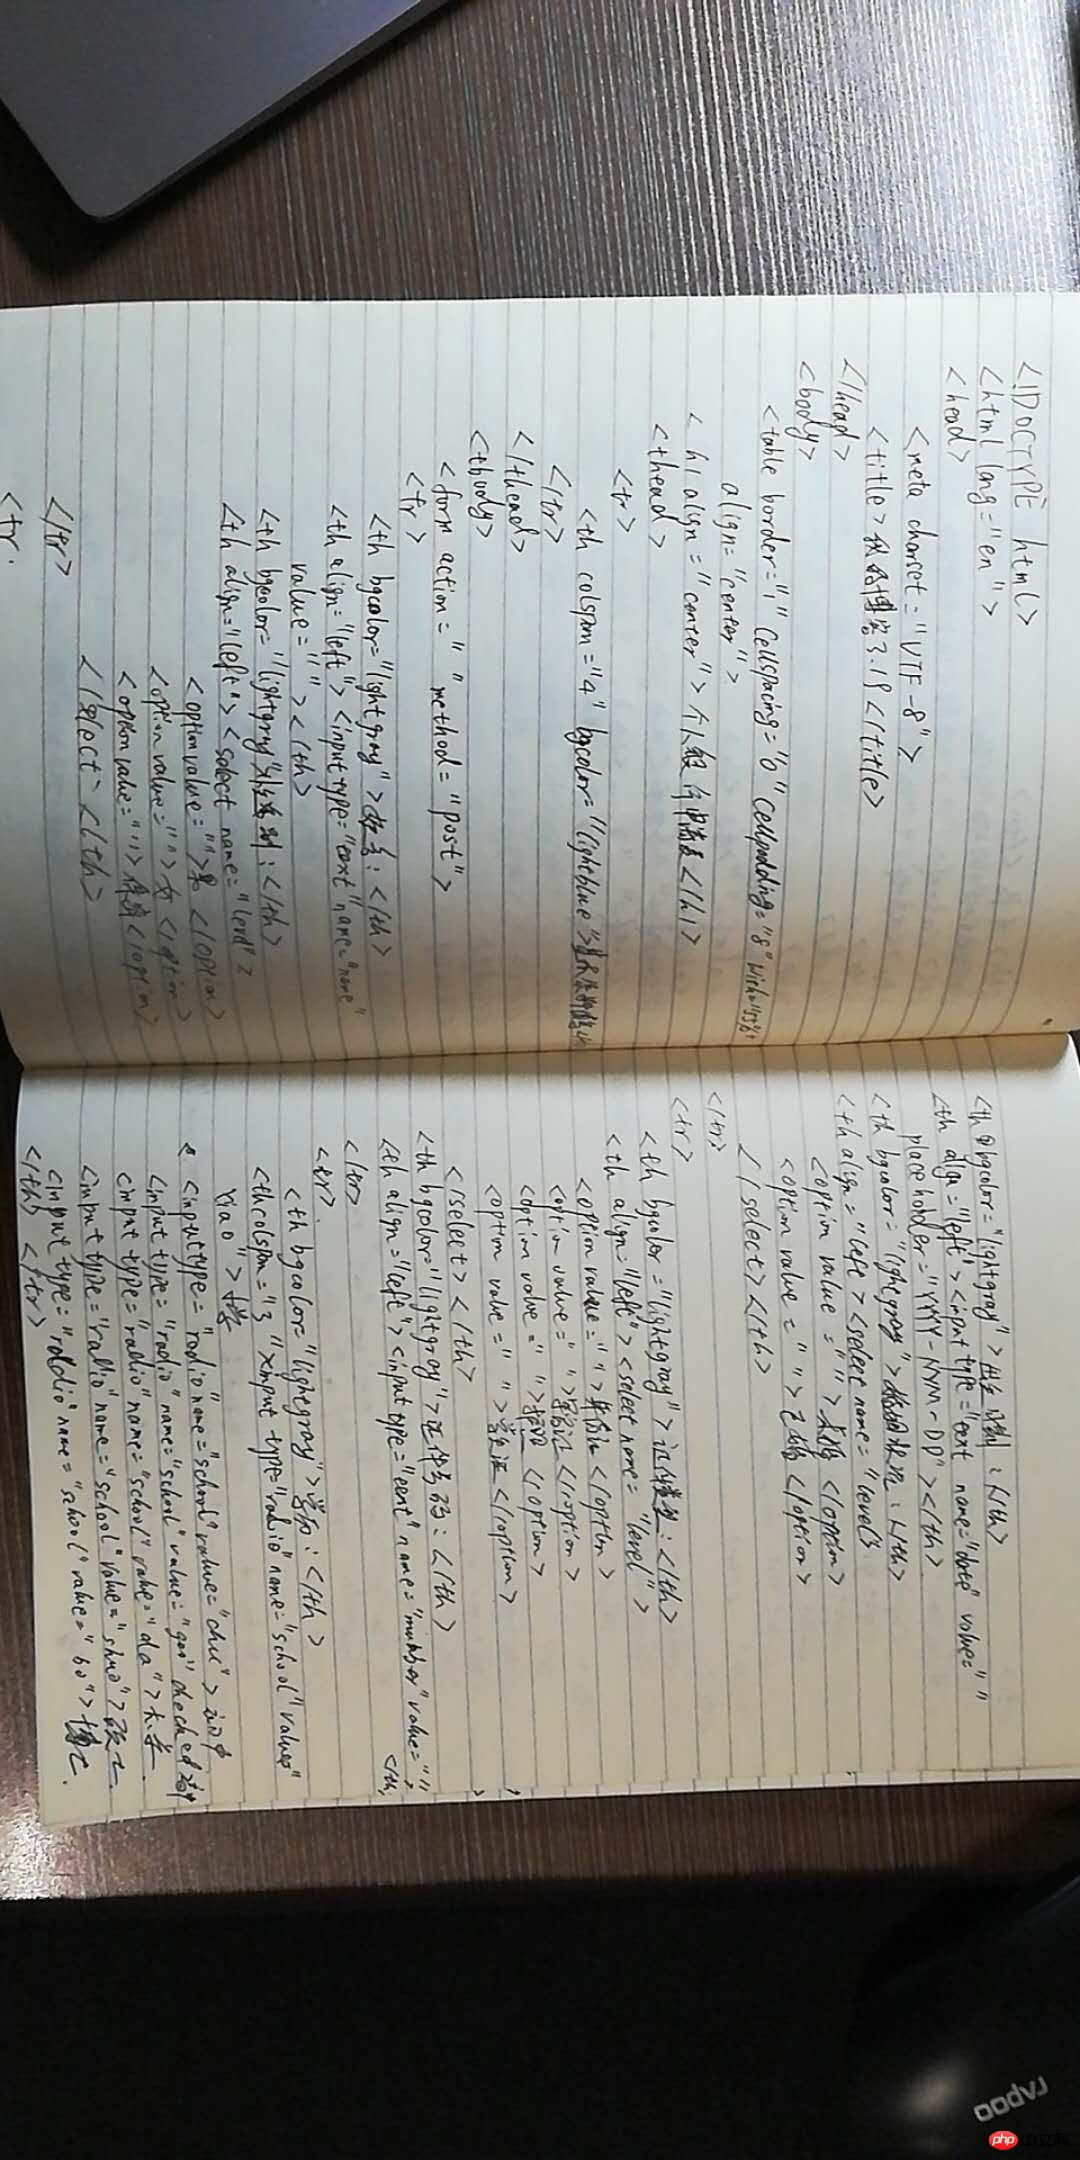 <!DOCTYPE html>
<html lang="en">
<head>
<meta charset="UTF-8">
<title>我的博客3.19</title>
</head>
<body>
<table border="1" cellspacing="0" cellpadding="8"
align="center">
<h1 align="center">个人</h1>
<thead>
<tr>
<th colspan="4" bgcolor="lightblue">
</tr>
</thead>
<tbody>
<form action=" " method="post">
<tr>
<th bgcolor="lightgray">姓名:</th>
<th align="left"><input type="text" name="name"
value=" "></th>
<th bgcolor="lightgray">性别:</th>
<th align="left"><select name="level">
<option value="">男</option>
<option value="">女</option>
<option value="">保密</option>
</select></th>
</tr>
<tr.
<th bgcolor="lightgray">出生:</th>
<th align="left"><input type="text name="date" value=" "
placeholder="YYYY-MM-DD"></th>
<th bgcolor="lightgray">婚姻状况:</th>
<th align="left><select name="level">
<option value=" ">未婚</option>
<option value=" ">已婚</option>
</select></th>
</tr>
<tr>
<th bgcolor="lightgray">证件类型:</th>
<th align="left"><select name="level">
<option value=" ">身份证</option>
<option value=" "></option>
<option value=" "></option>
<option value=" ">学生证</option>
</select></th>
<th bgcolor="lightgray">证件号码:</th>
<th align="left"><input type="text" name="number" value=""
></th>
</tr>
<tr>.
<th bgcolor="lightgray">学历:</th>
<th colspan="3"><input type="radio" name="school" value="
xiao">小学
<input type="radio" name="school" value="chu">初中
<input type="radio" name="school" value="gao" checked 高中
<input type="radio" name="school" value="da">大学
<input type="radio" name="school" value="shuo">硕士
<input type="radio" name="school" value="bo">博士.
</th> </tr>
rapoo
php 中文网